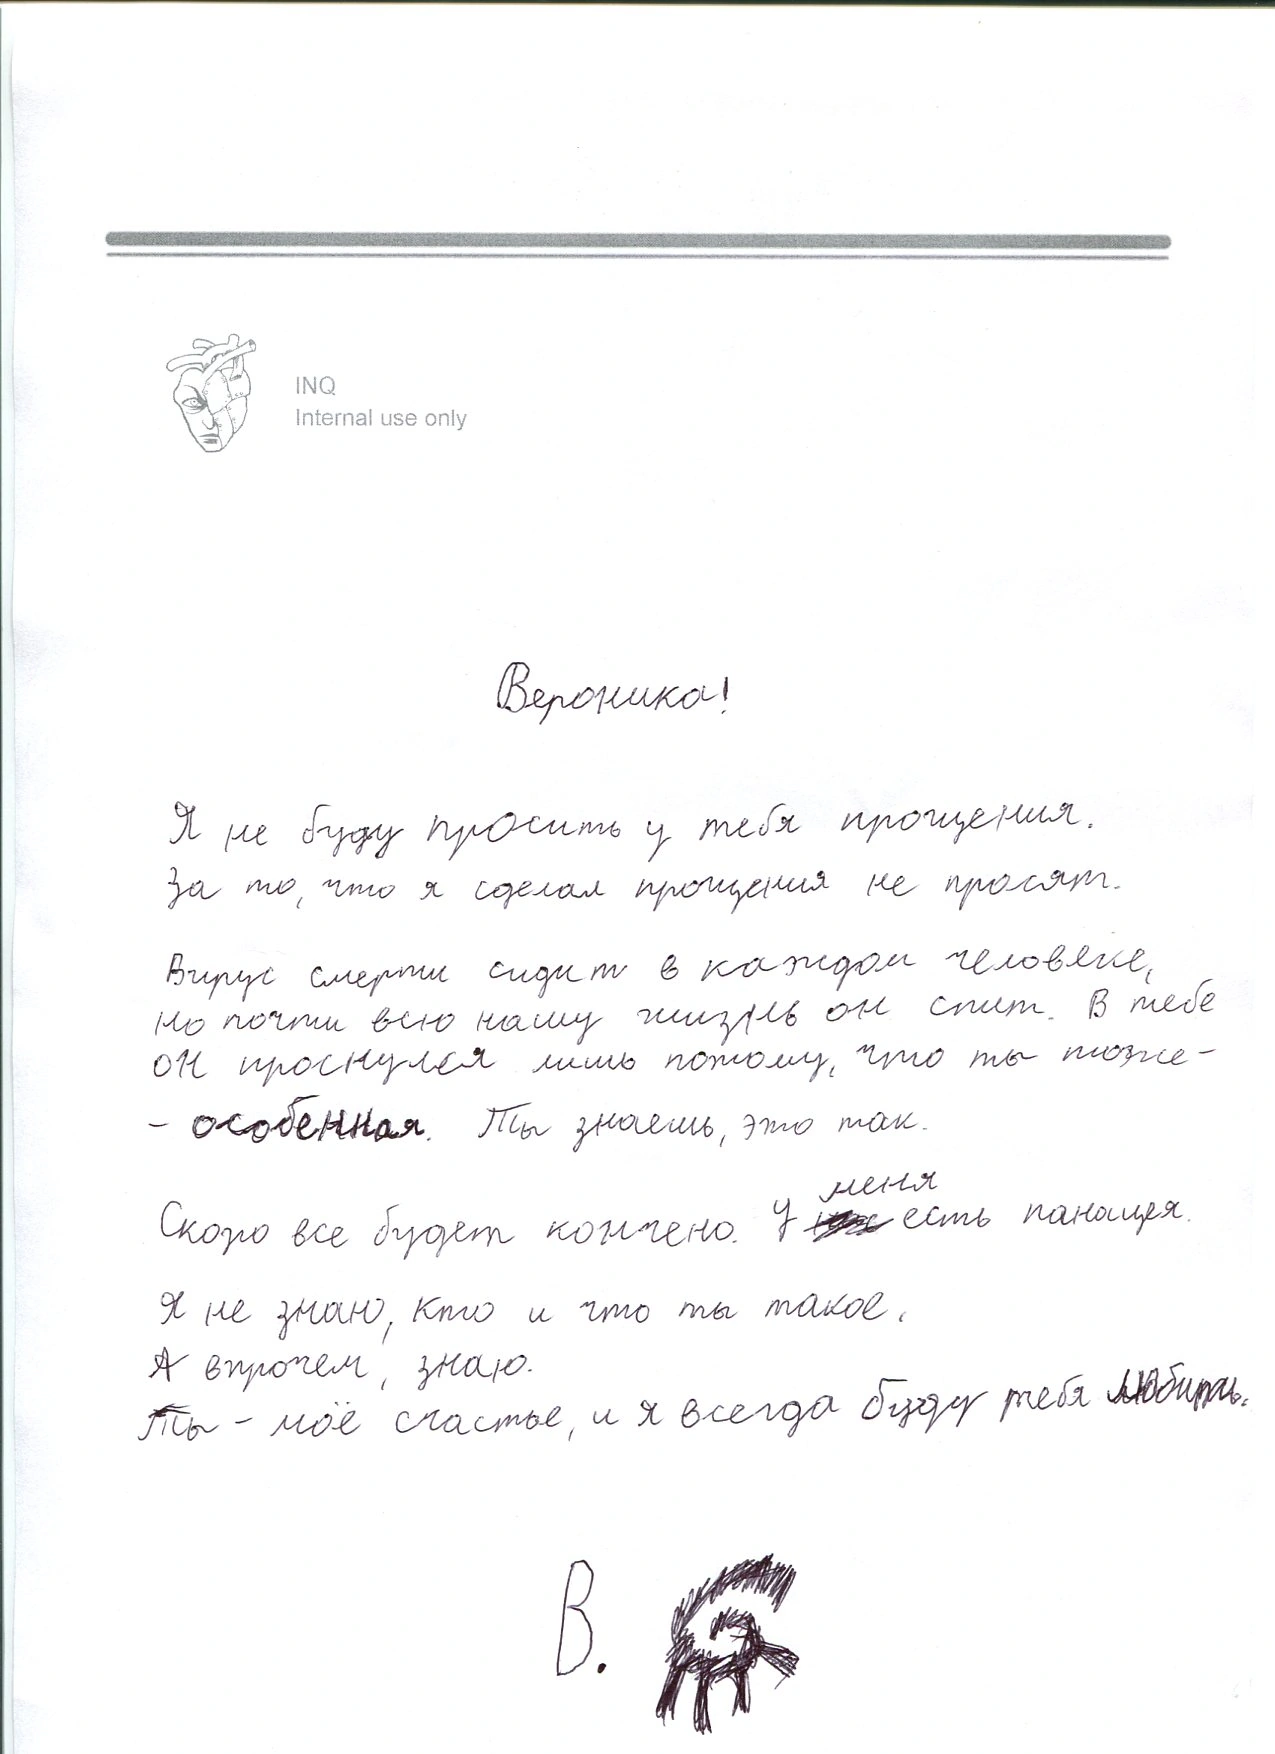 INQ
Internal use only
Вероника!
Я не буду просить у тебя прощения.
За то, что я сделал прощения не просят.
Вирус смерти сидит в каждом человеке,
но почти всю нашу жизнь он спит. В тебе
он проснулся лишь потому, что ты тоже -
- особенная. Ты знаешь, это так.
Скоро все будет кончено. У меня есть панацея.
Я не знаю, кто и что ты такое.
А впрочем, знаю.
Ты - моё счастье, и я всегда буду тебя любить.
В.